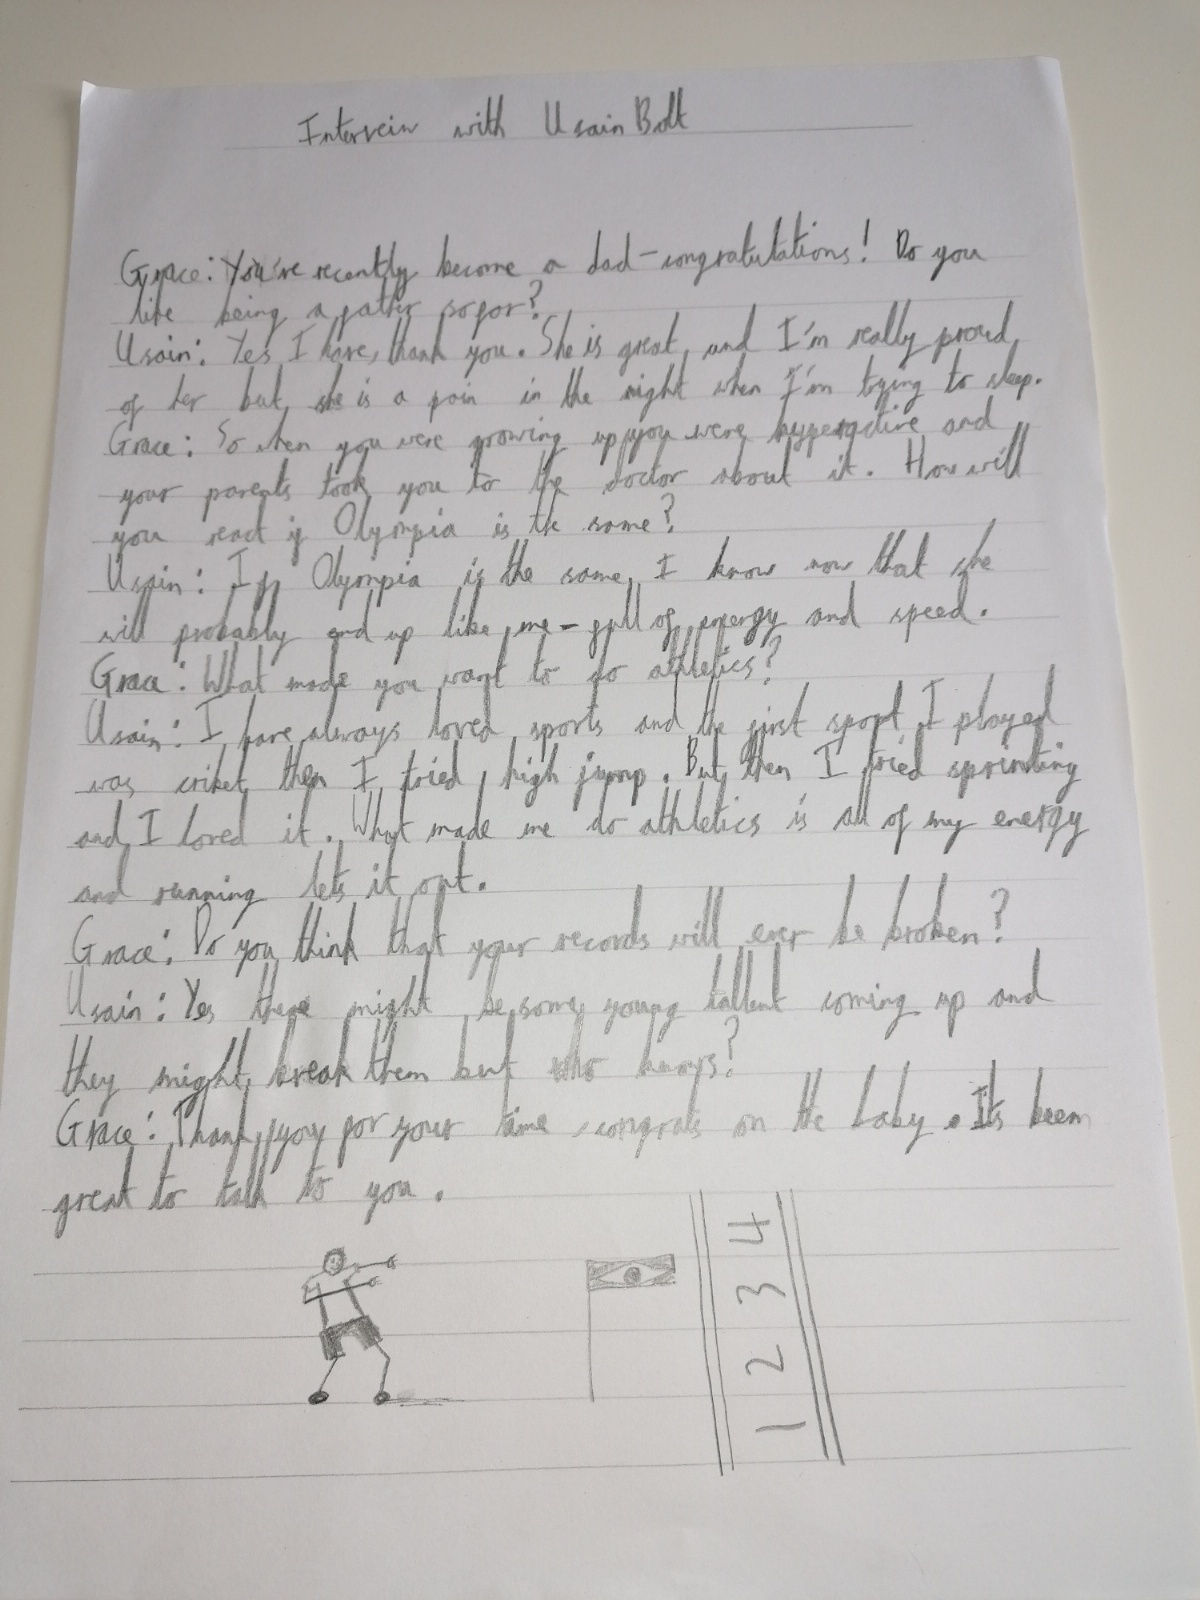 Interveiw with Usain Bolt
Grace: You've recently become a dad - congratulations! Do you
like being a father so far?
Usain: Yes I have, thank you. She is great, and I'm really proud
of her but, she is a pain in the night when I'm trying to sleep.
Grace: So when you were growing up, you were hyperactive and
your parents took you to the doctor about it. How will
you react if Olympia is the same?
Usain: If Olympia is the same, I know now that she
will probably end up like me - full of energy and speed.
Grace: What made you want to do athletics?
Usain: I have always loved sports and the first sport I played
was criket then I tried high jump. But, then I tried sprinting
and I loved it. What made me do athletics is all of my energy
and running lets it out.
Grace: Do you think that your records will ever be broken?
Usain: Yes there might be some young tallent coming up and
they might break them but who knows?
Grace: Thank you for your time, congrats on the baby. Its been
great to talk to you.
1 2 3 4